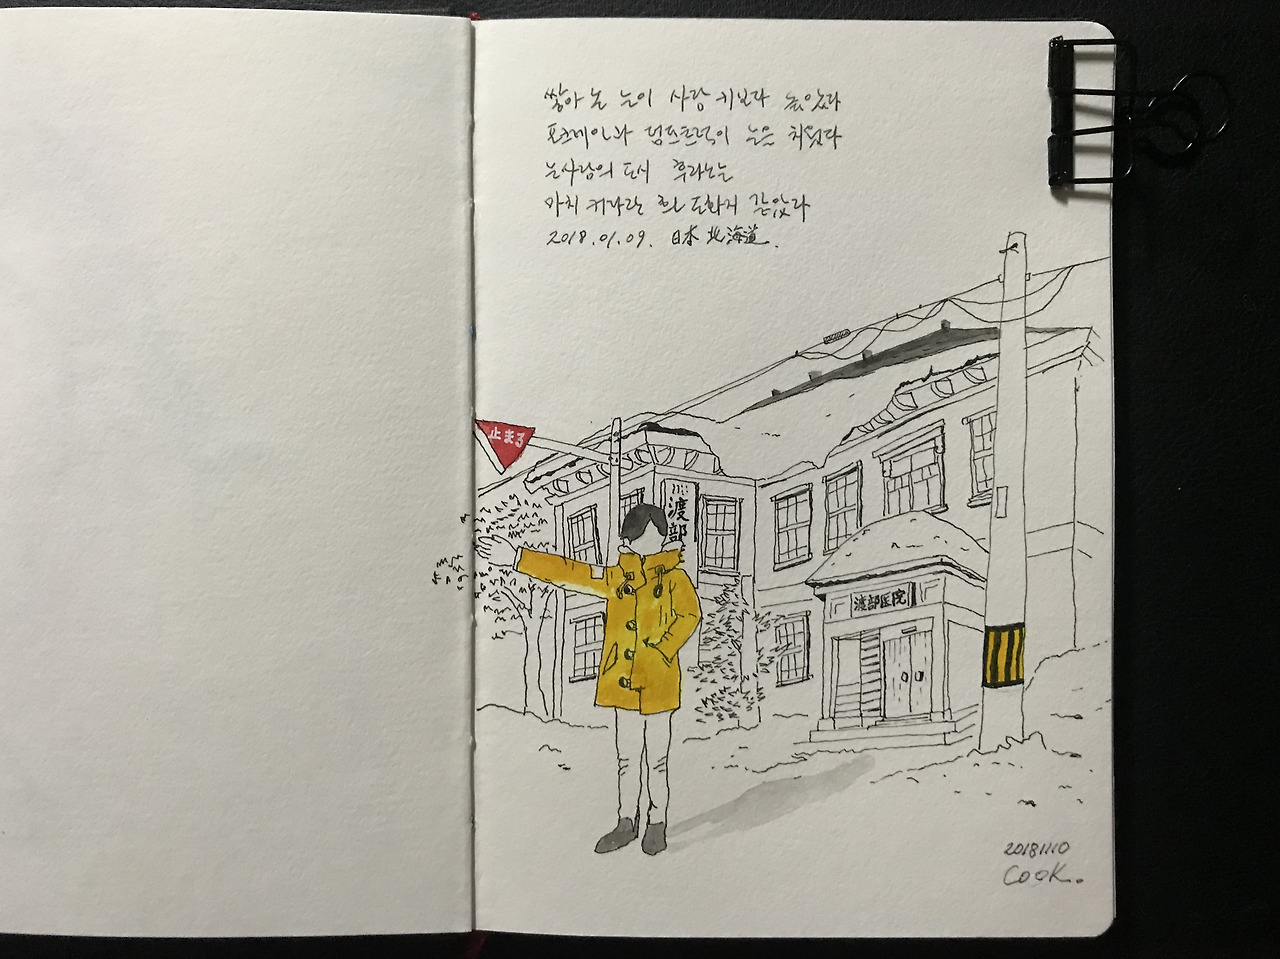 쌓아 논 눈이 사람 키보다 높았다
포크레인과 덤프트럭이 눈을 치웠다
눈사람의 도시 후라노는
마치 커다란 흰 도화지 같았다
2018.01.09. 日本 北海道.
止まる
渡部
渡部医院
20181110
COOK.